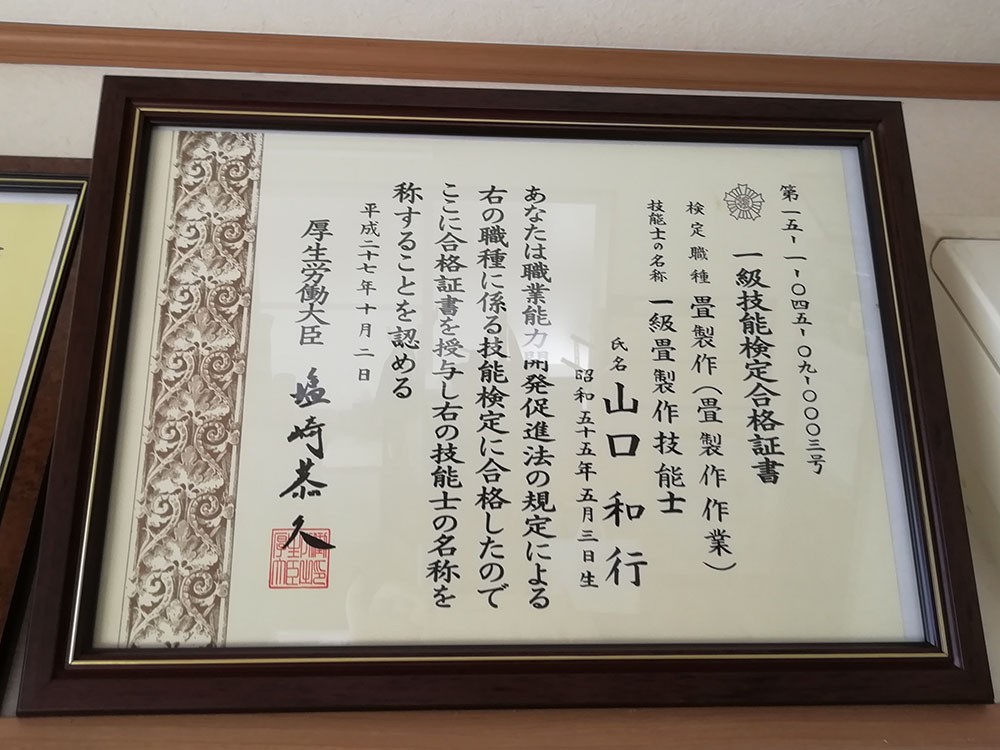 第一五-一-〇四五-〇九-〇〇〇三号
一級技能検定合格証書
検定職種 畳製作（畳製作作業）
技能士の名称 一級畳製作技能士
氏名 山口 和行
昭和五十五年五月三日生
あなたは職業能力開発促進法の規定による
右の職種に係る技能検定に合格したので
ここに合格証書を授与し右の技能士の名称を
称することを認める
平成二十七年十月二日
厚生労働大臣 塩崎恭久